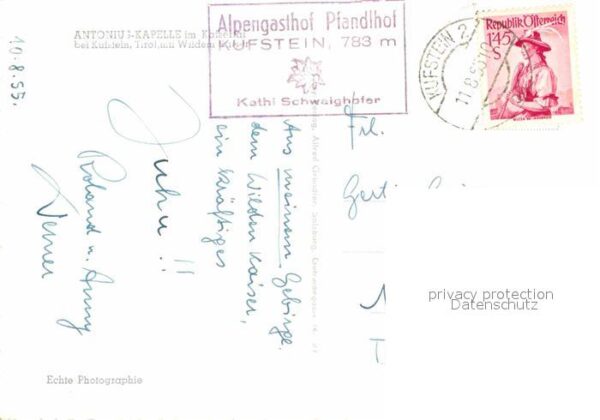 10.8.55.
ANTONIUS-KAPELLE im Kaisertal
bei Kufstein, Tirol, mit Wildem Kaiser
Alpengasthof Pfandlhof
KUFSTEIN, 783 m
Kathi Schwaighofer
KUFSTEIN 2
11.8.55
Republik Österreich
1'45
S
Aus meinem Gebirge,
dem Wilden Kaiser,
ein kräftiges
Juhu!!
Roland u. Anny
Werner
Alfred Gründler, Salzburg,
Frl.
Gerti
privacy protection
Datenschutz
Echte Photographie